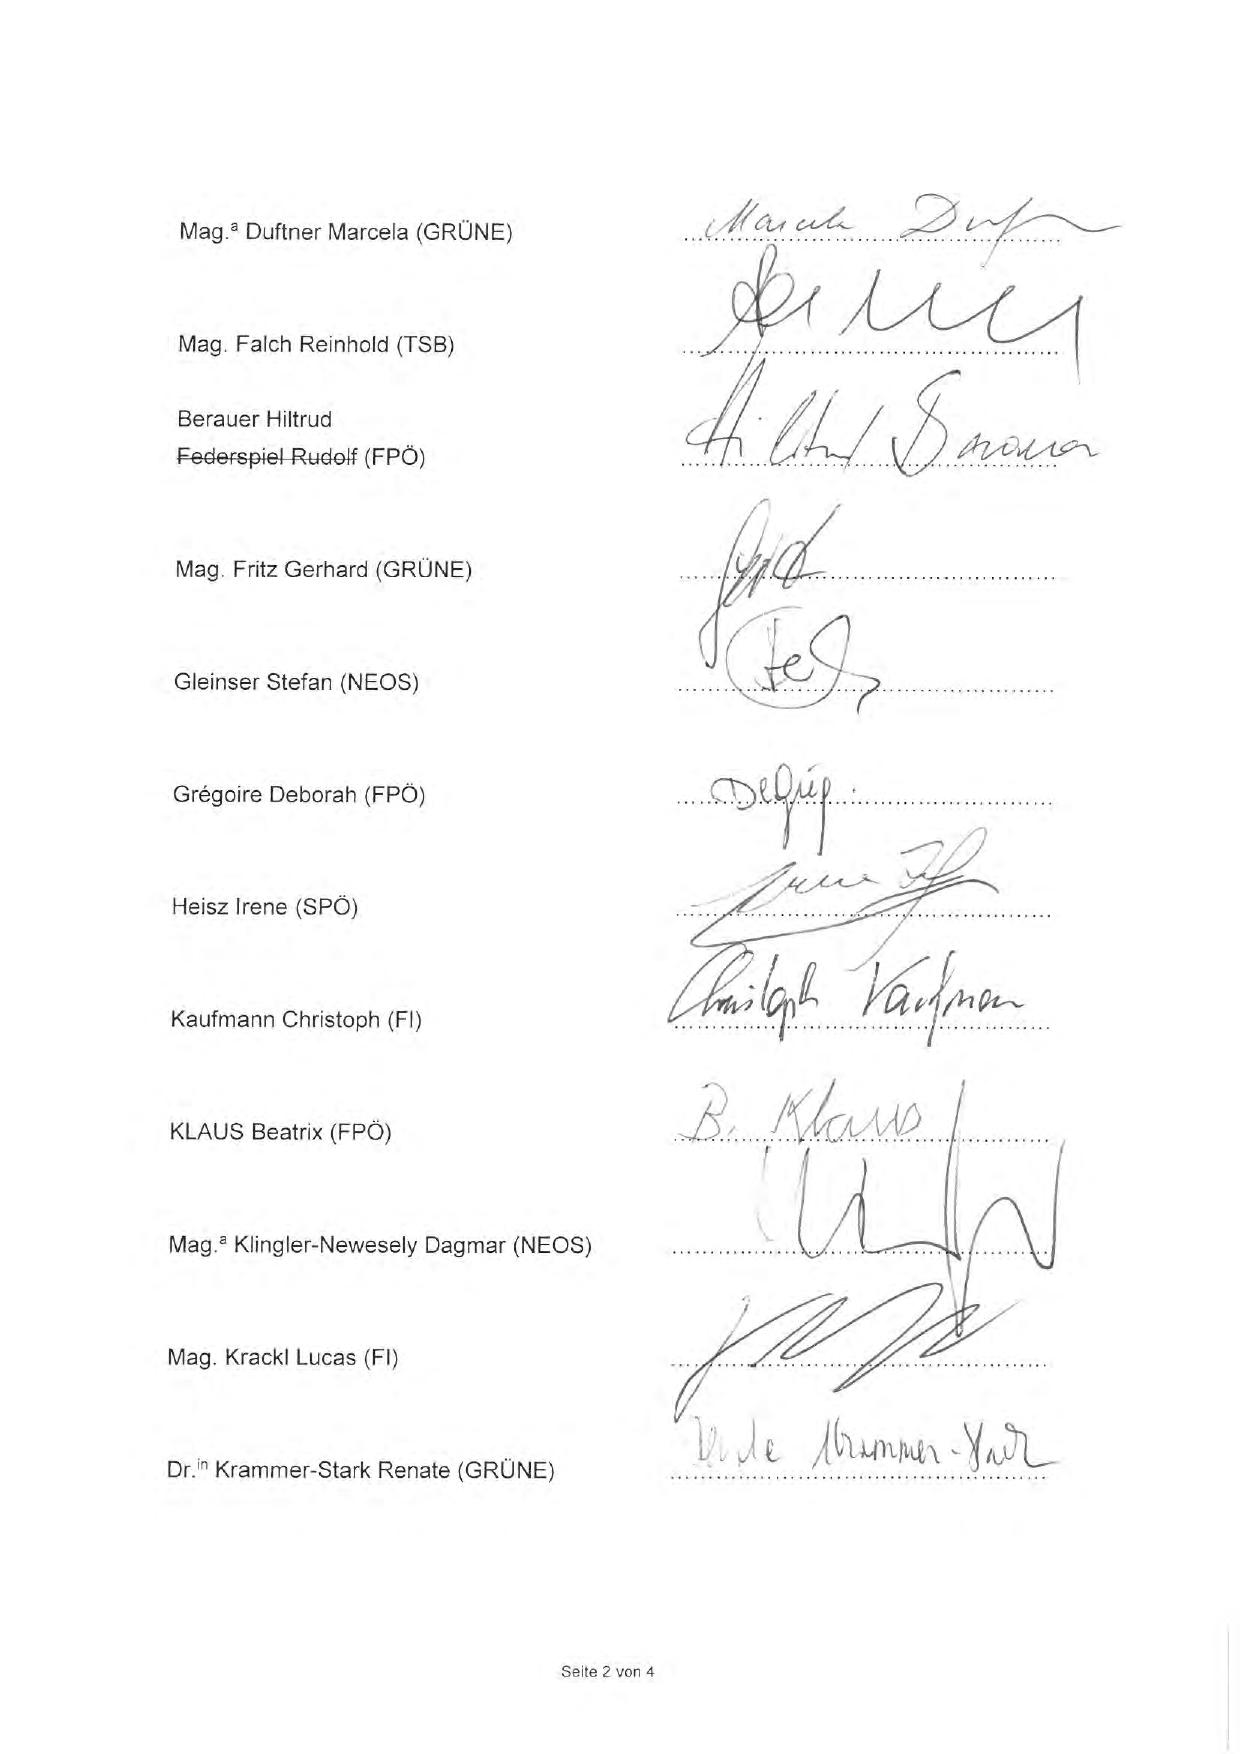 Mag.ª Duftner Marcela (GRÜNE) Marcela Duf
Mag. Falch Reinhold (TSB)
Berauer Hiltrud
Federspiel Rudolf (FPÖ) Hiltrud Berauer
Mag. Fritz Gerhard (GRÜNE)
Gleinser Stefan (NEOS)
Grégoire Deborah (FPÖ)
Heisz Irene (SPÖ) Irene
Kaufmann Christoph (FI) Christoph Kaufmann
KLAUS Beatrix (FPÖ) B. Klaus
Mag.ª Klingler-Newesely Dagmar (NEOS)
Mag. Krackl Lucas (FI)
Dr.ⁱⁿ Krammer-Stark Renate (GRÜNE) Renate Krammer-Stark
Seite 2 von 4